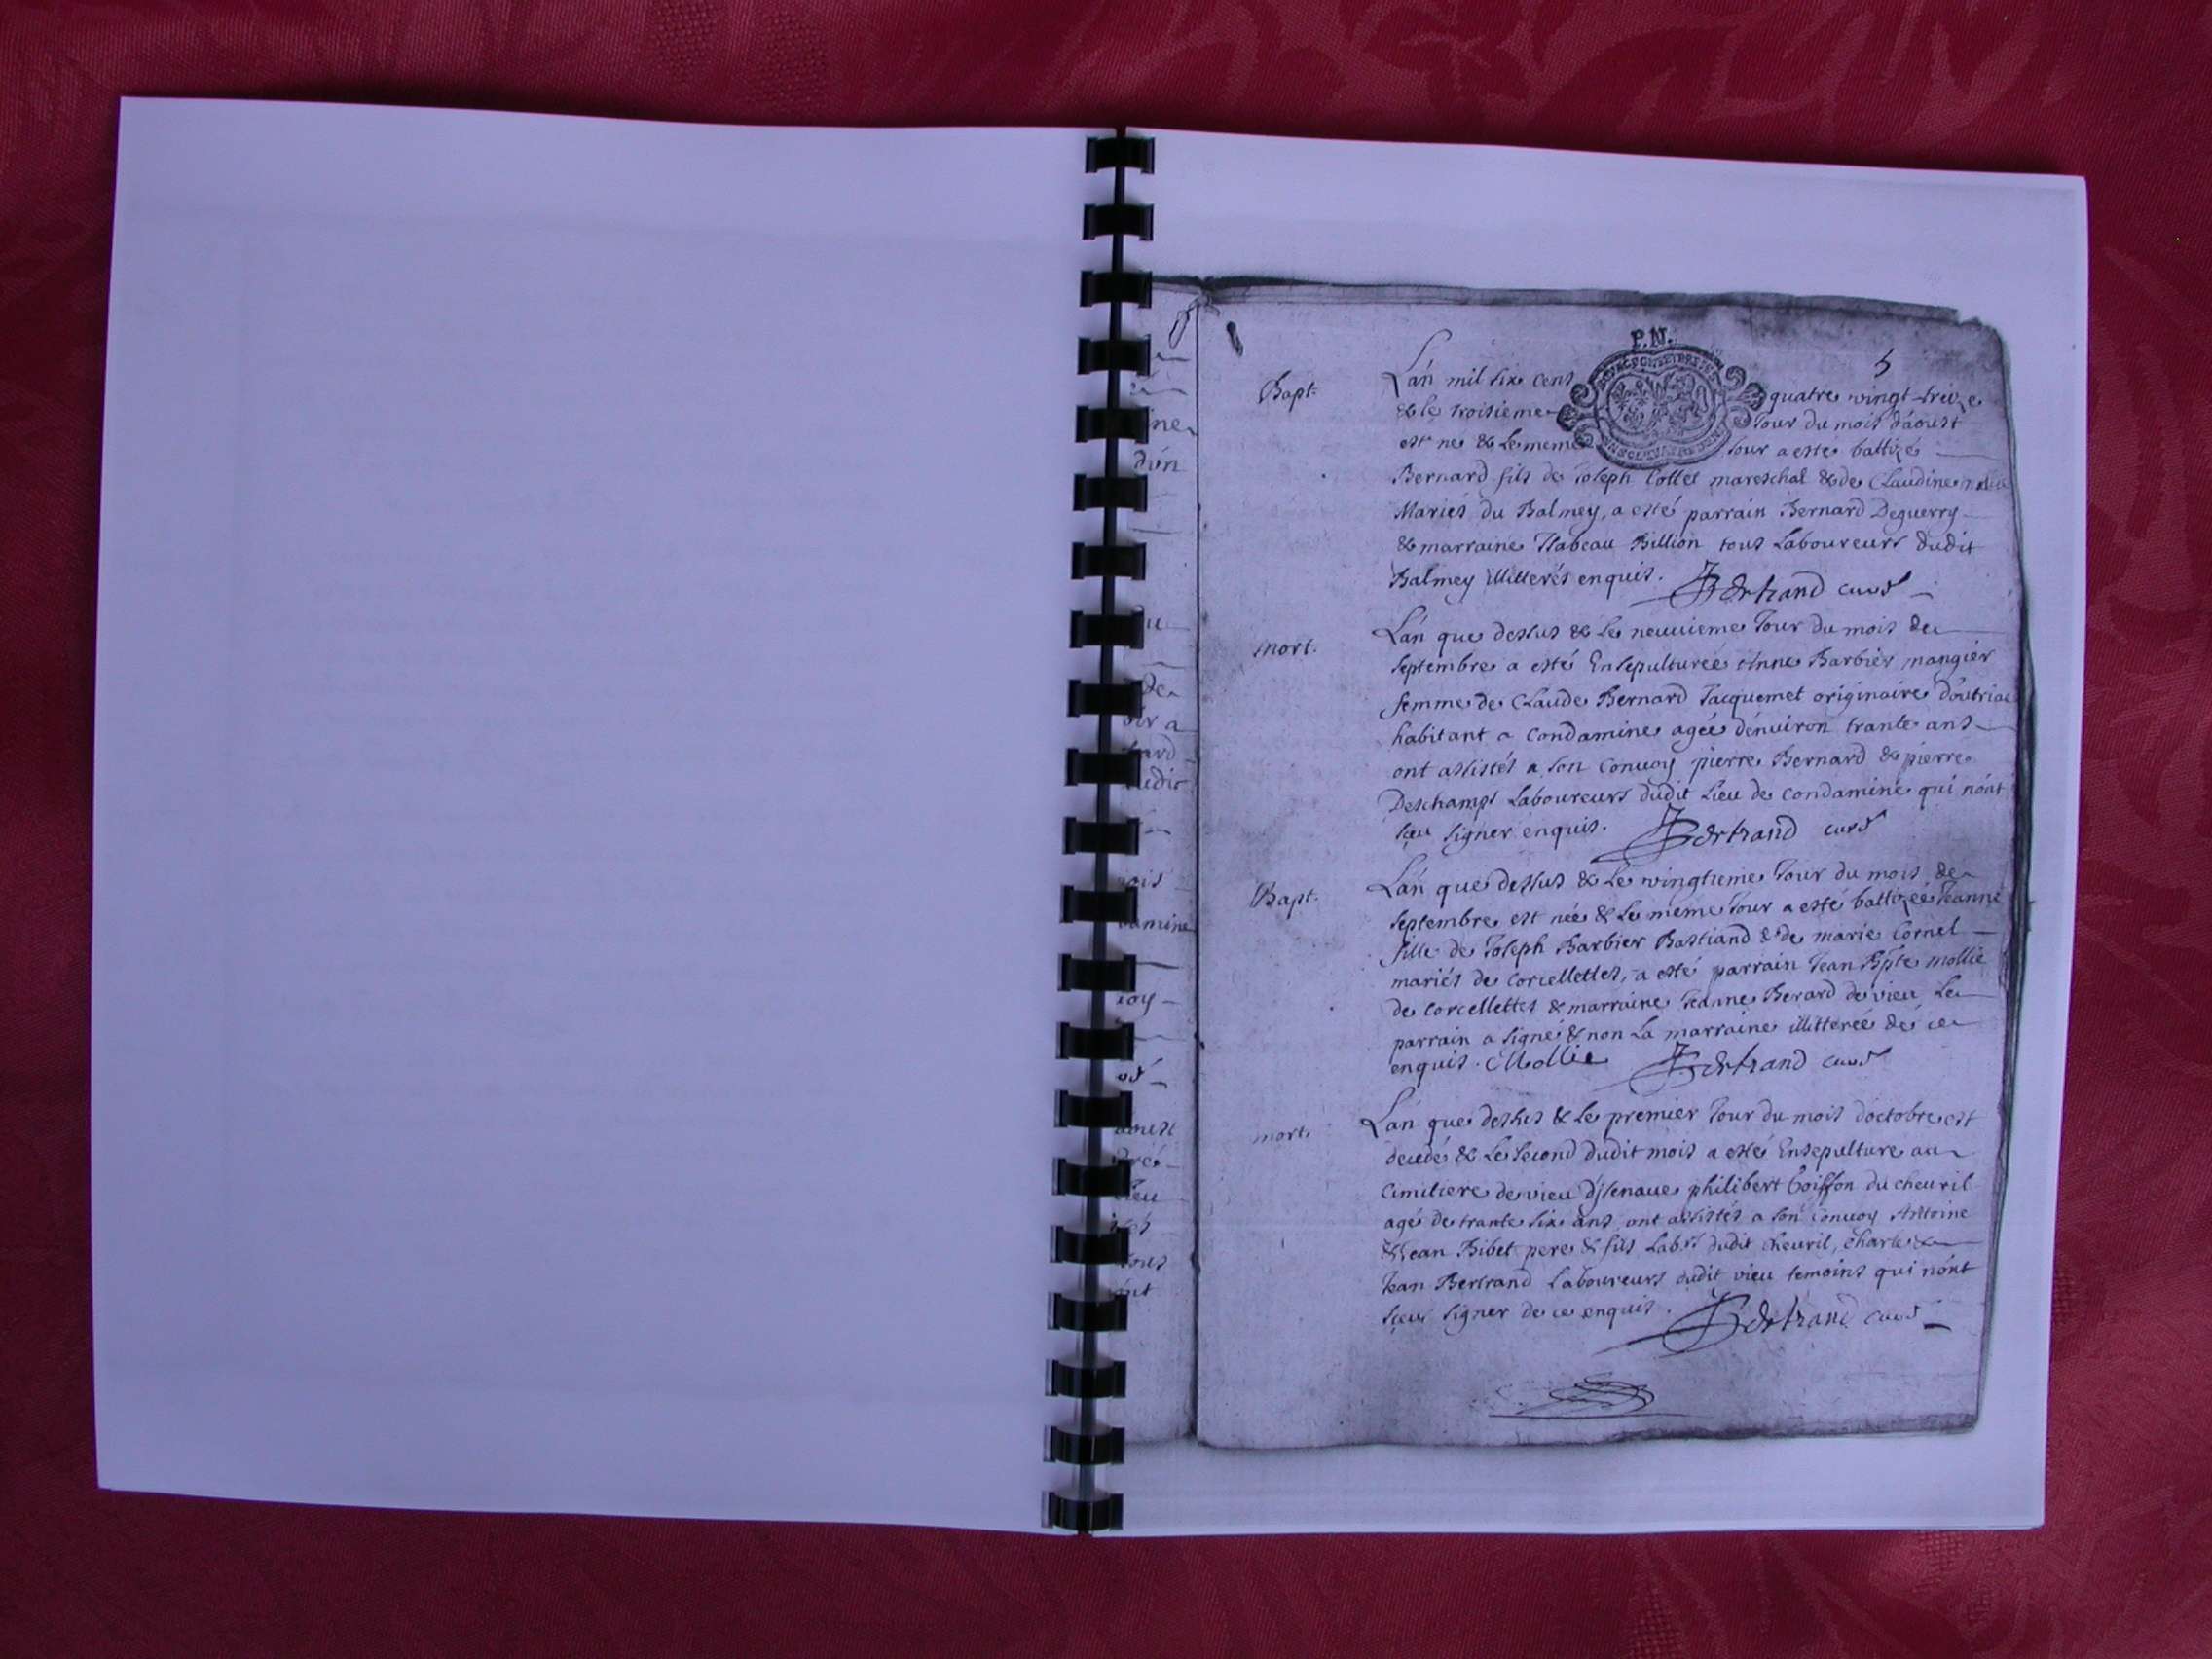 P.N.
5
Bapt. Lán mil six cens quatre vingt treize
& le troisieme Jour du mois d'aoust
est né & le meme Jour a esté battizé
Bernard fils de Joseph Collet mareschal & de Claudine
Mariés du Balmey, a esté parrain Bernard Deguerry
& marraine Isabeau Billion tous Laboureurs dudit
Balmey illitterés enquis. Bertrand curé
mort. Lán que dessus & le neuuieme Jour du mois de
septembre a esté Ensepulturée Anne Barbier mangier
femme de Claude Bernard Jacquemet originaire d'outriac
habitant a Condamine agée d'enuiron trante ans
ont assistés a son conuoy pierre Bernard & pierre
Deschamps Laboureurs dudit Lieu de condamine qui n'ont
sçeu signer enquis. Bertrand curé
Bapt. Lán que dessus & Le vingtieme Jour du mois de
septembre est née & Le meme Jour a esté battizée Jeanne
fille de Joseph Barbier Bastiand & de marie Cornel
mariés de corcellettes, a esté parrain Jean Bpte mollie
de corcellettes & marraine Jeanne Berard de vieu Le
parrain a signé & non La marraine illitterée de ce
enquis. Mollie Bertrand curé
mort. Lán que dessus & Le premier Jour du mois d'octobre est
decedé & Le second dudit mois a esté Ensepulture au
Cimitiere de vieu d'jsenaue philibert Goiffon du cheuril
agé de trante six ans ont assistés a son conuoy Antoine
& Jean Bibet pere & fils Labrs dudit cheuril, charle &
Jean Bertrand Laboureurs dudit vieu temoins qui n'ont
sçeu signer de ce enquis. Bertrand curé